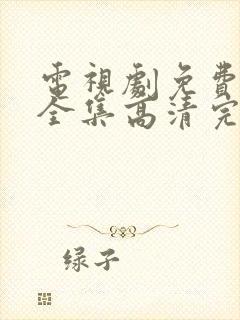 電視劇免費
全集高清完
绿子